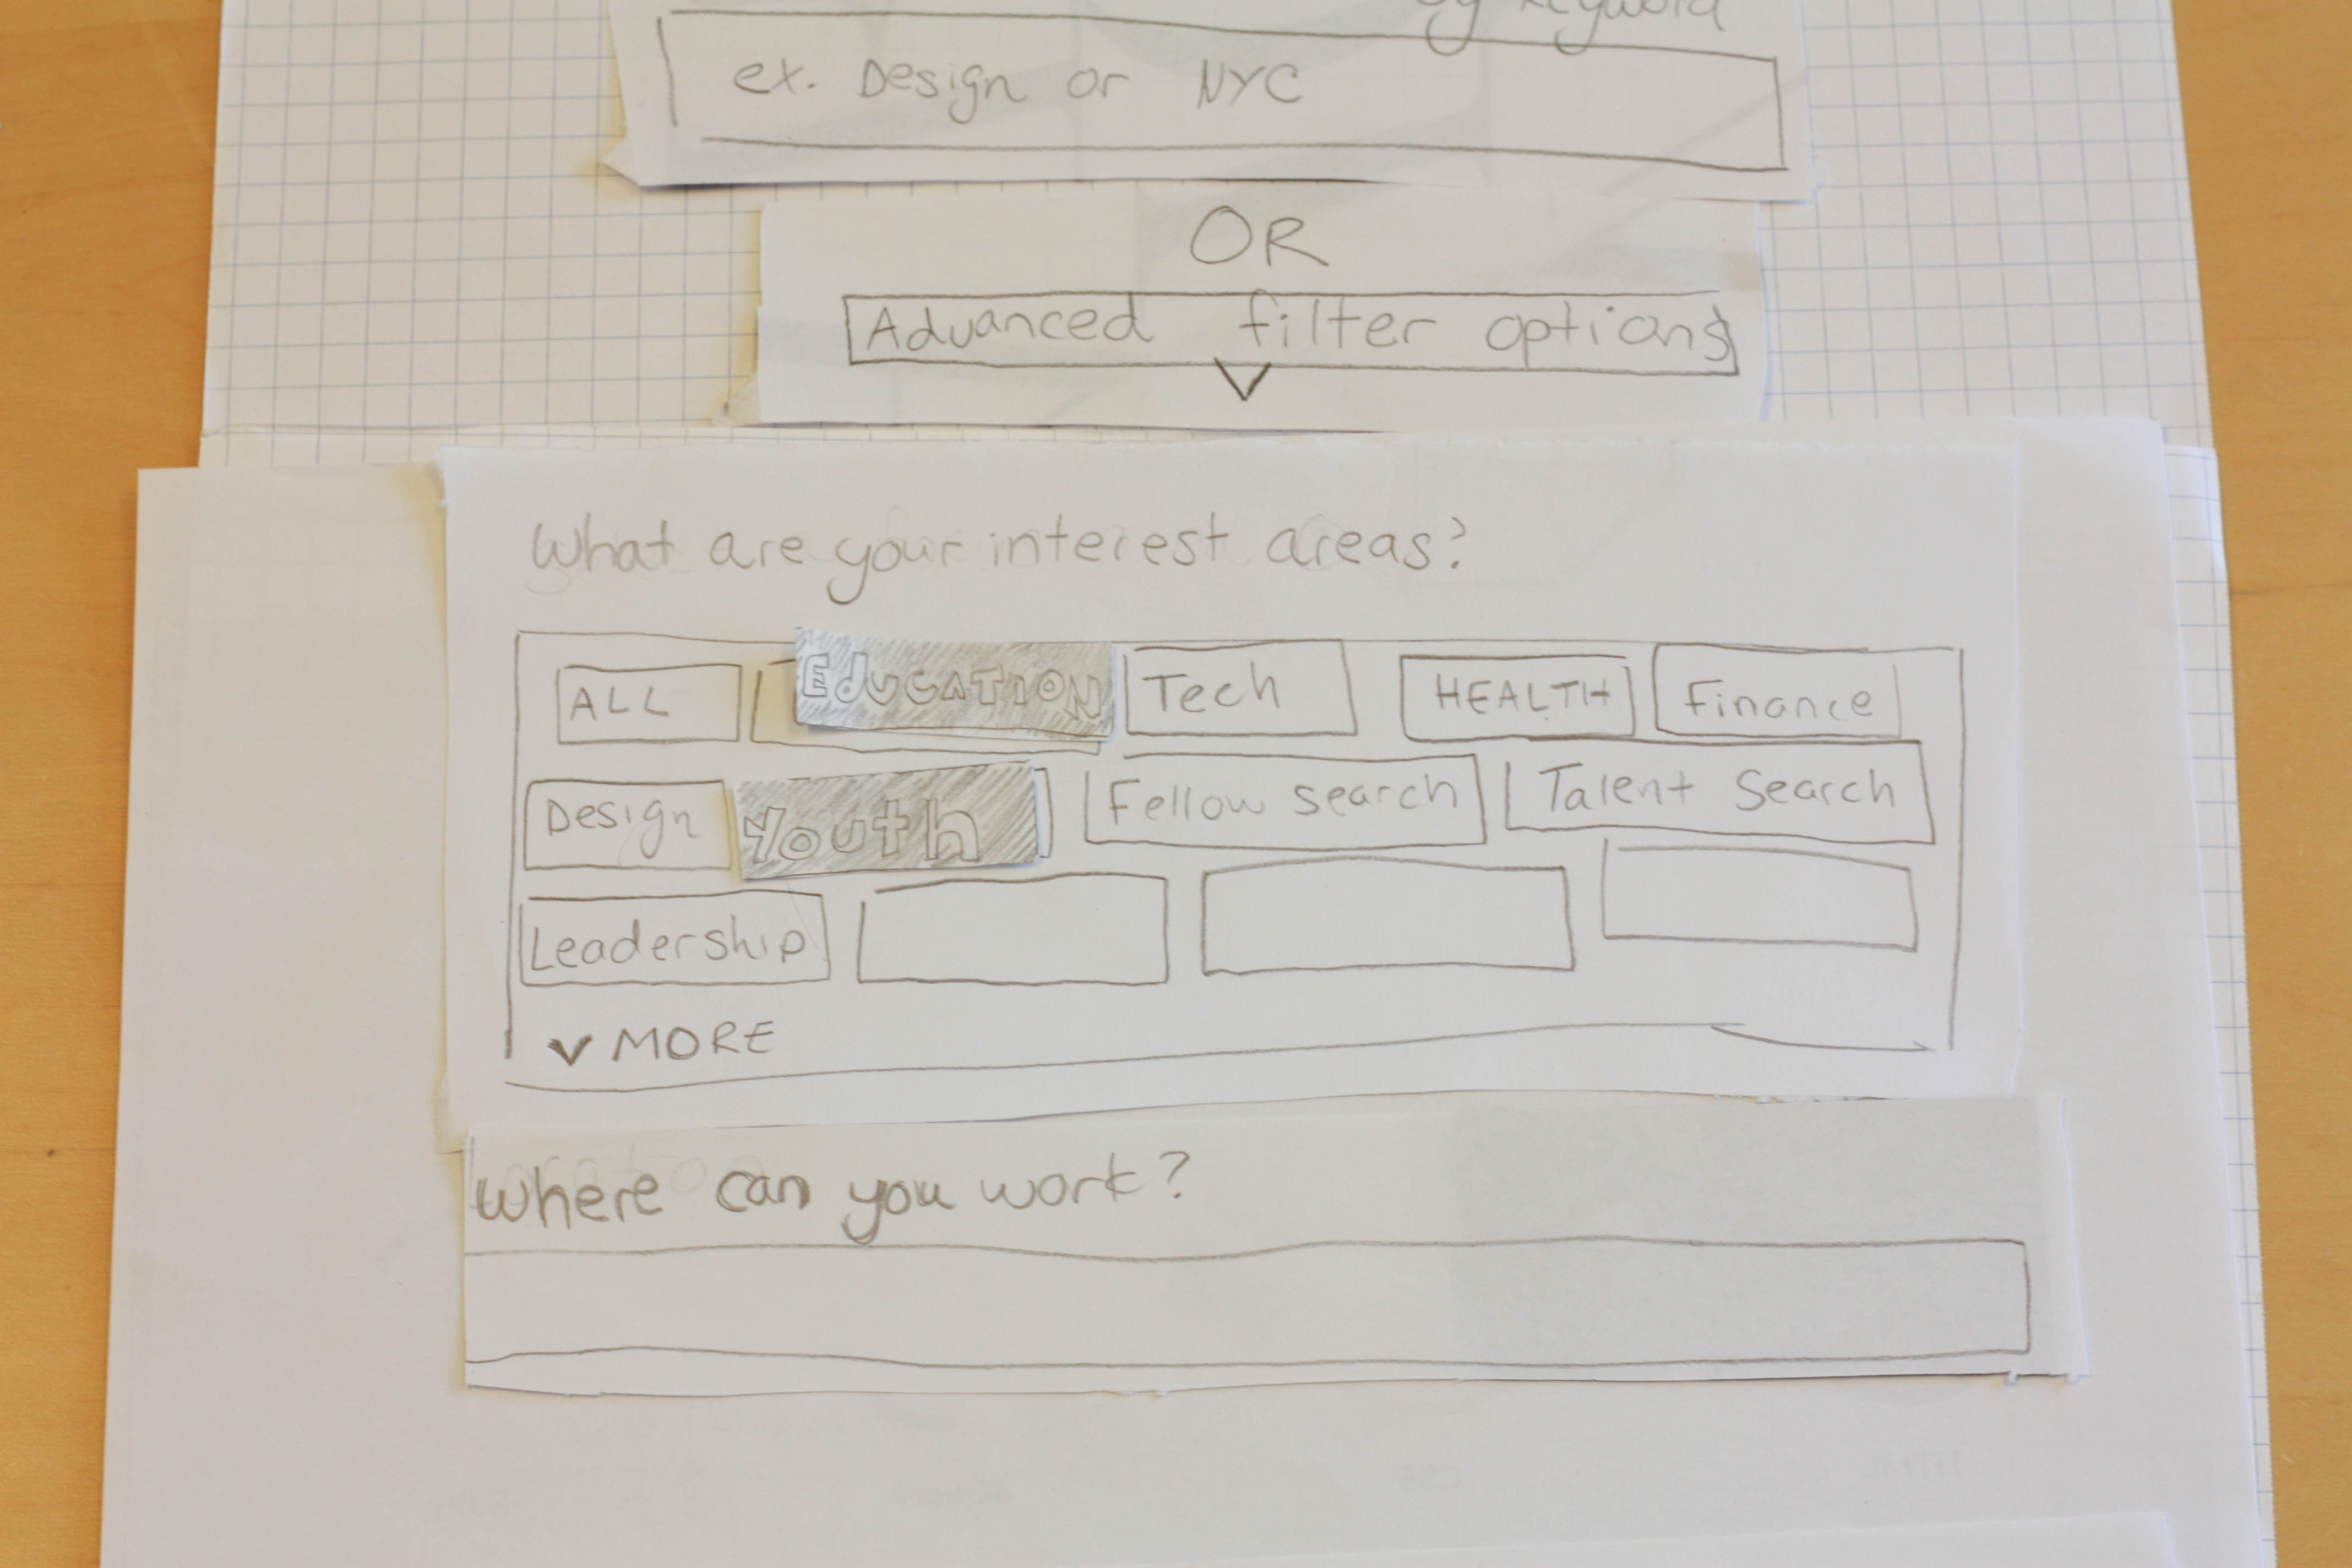 by keyword
ex. Design or NYC
OR
Advanced filter options
What are your interest areas?
ALL EDUCATION Tech HEALTH Finance
Design Youth Fellow search Talent Search
Leadership
MORE
Where can you work?